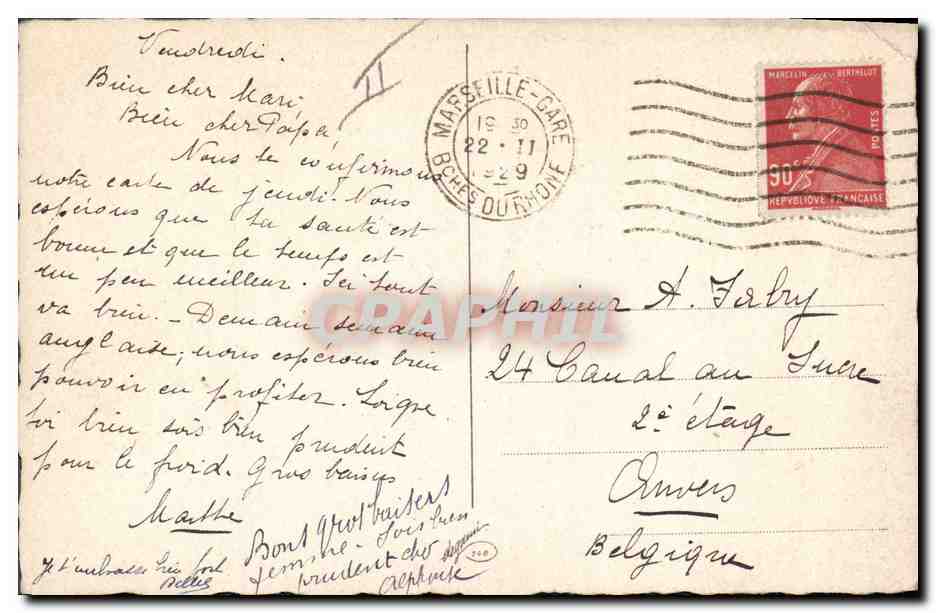 Vendredi.
Bien cher Mari
Bien cher Papa
II
Nous te confirmons
notre carte de jeudi. Nous
espérons que ta santé est
bonne et que le temps est
un peu meilleur. Ici tout
va bien. - Demain semaine
anglaise, nous espérons bien
pouvoir en profiter. Soigne
toi bien sois bien prudent
pour le froid. Gros baisers
Marthe
Je t'embrasse bien fort
Bons gros baisers
femme - sois bien
prudent
Alphonse
240
MARSEILLE-GARE
19 30
22 · II
1929
BCHES DU RHONE
MARCELIN BERTHELOT
POSTES
90c
REPVBLIQUE FRANCAISE
CRAPHIL
Monsieur A. Fabry
24 Canal au Sucre
2è étage
Anvers
Belgique